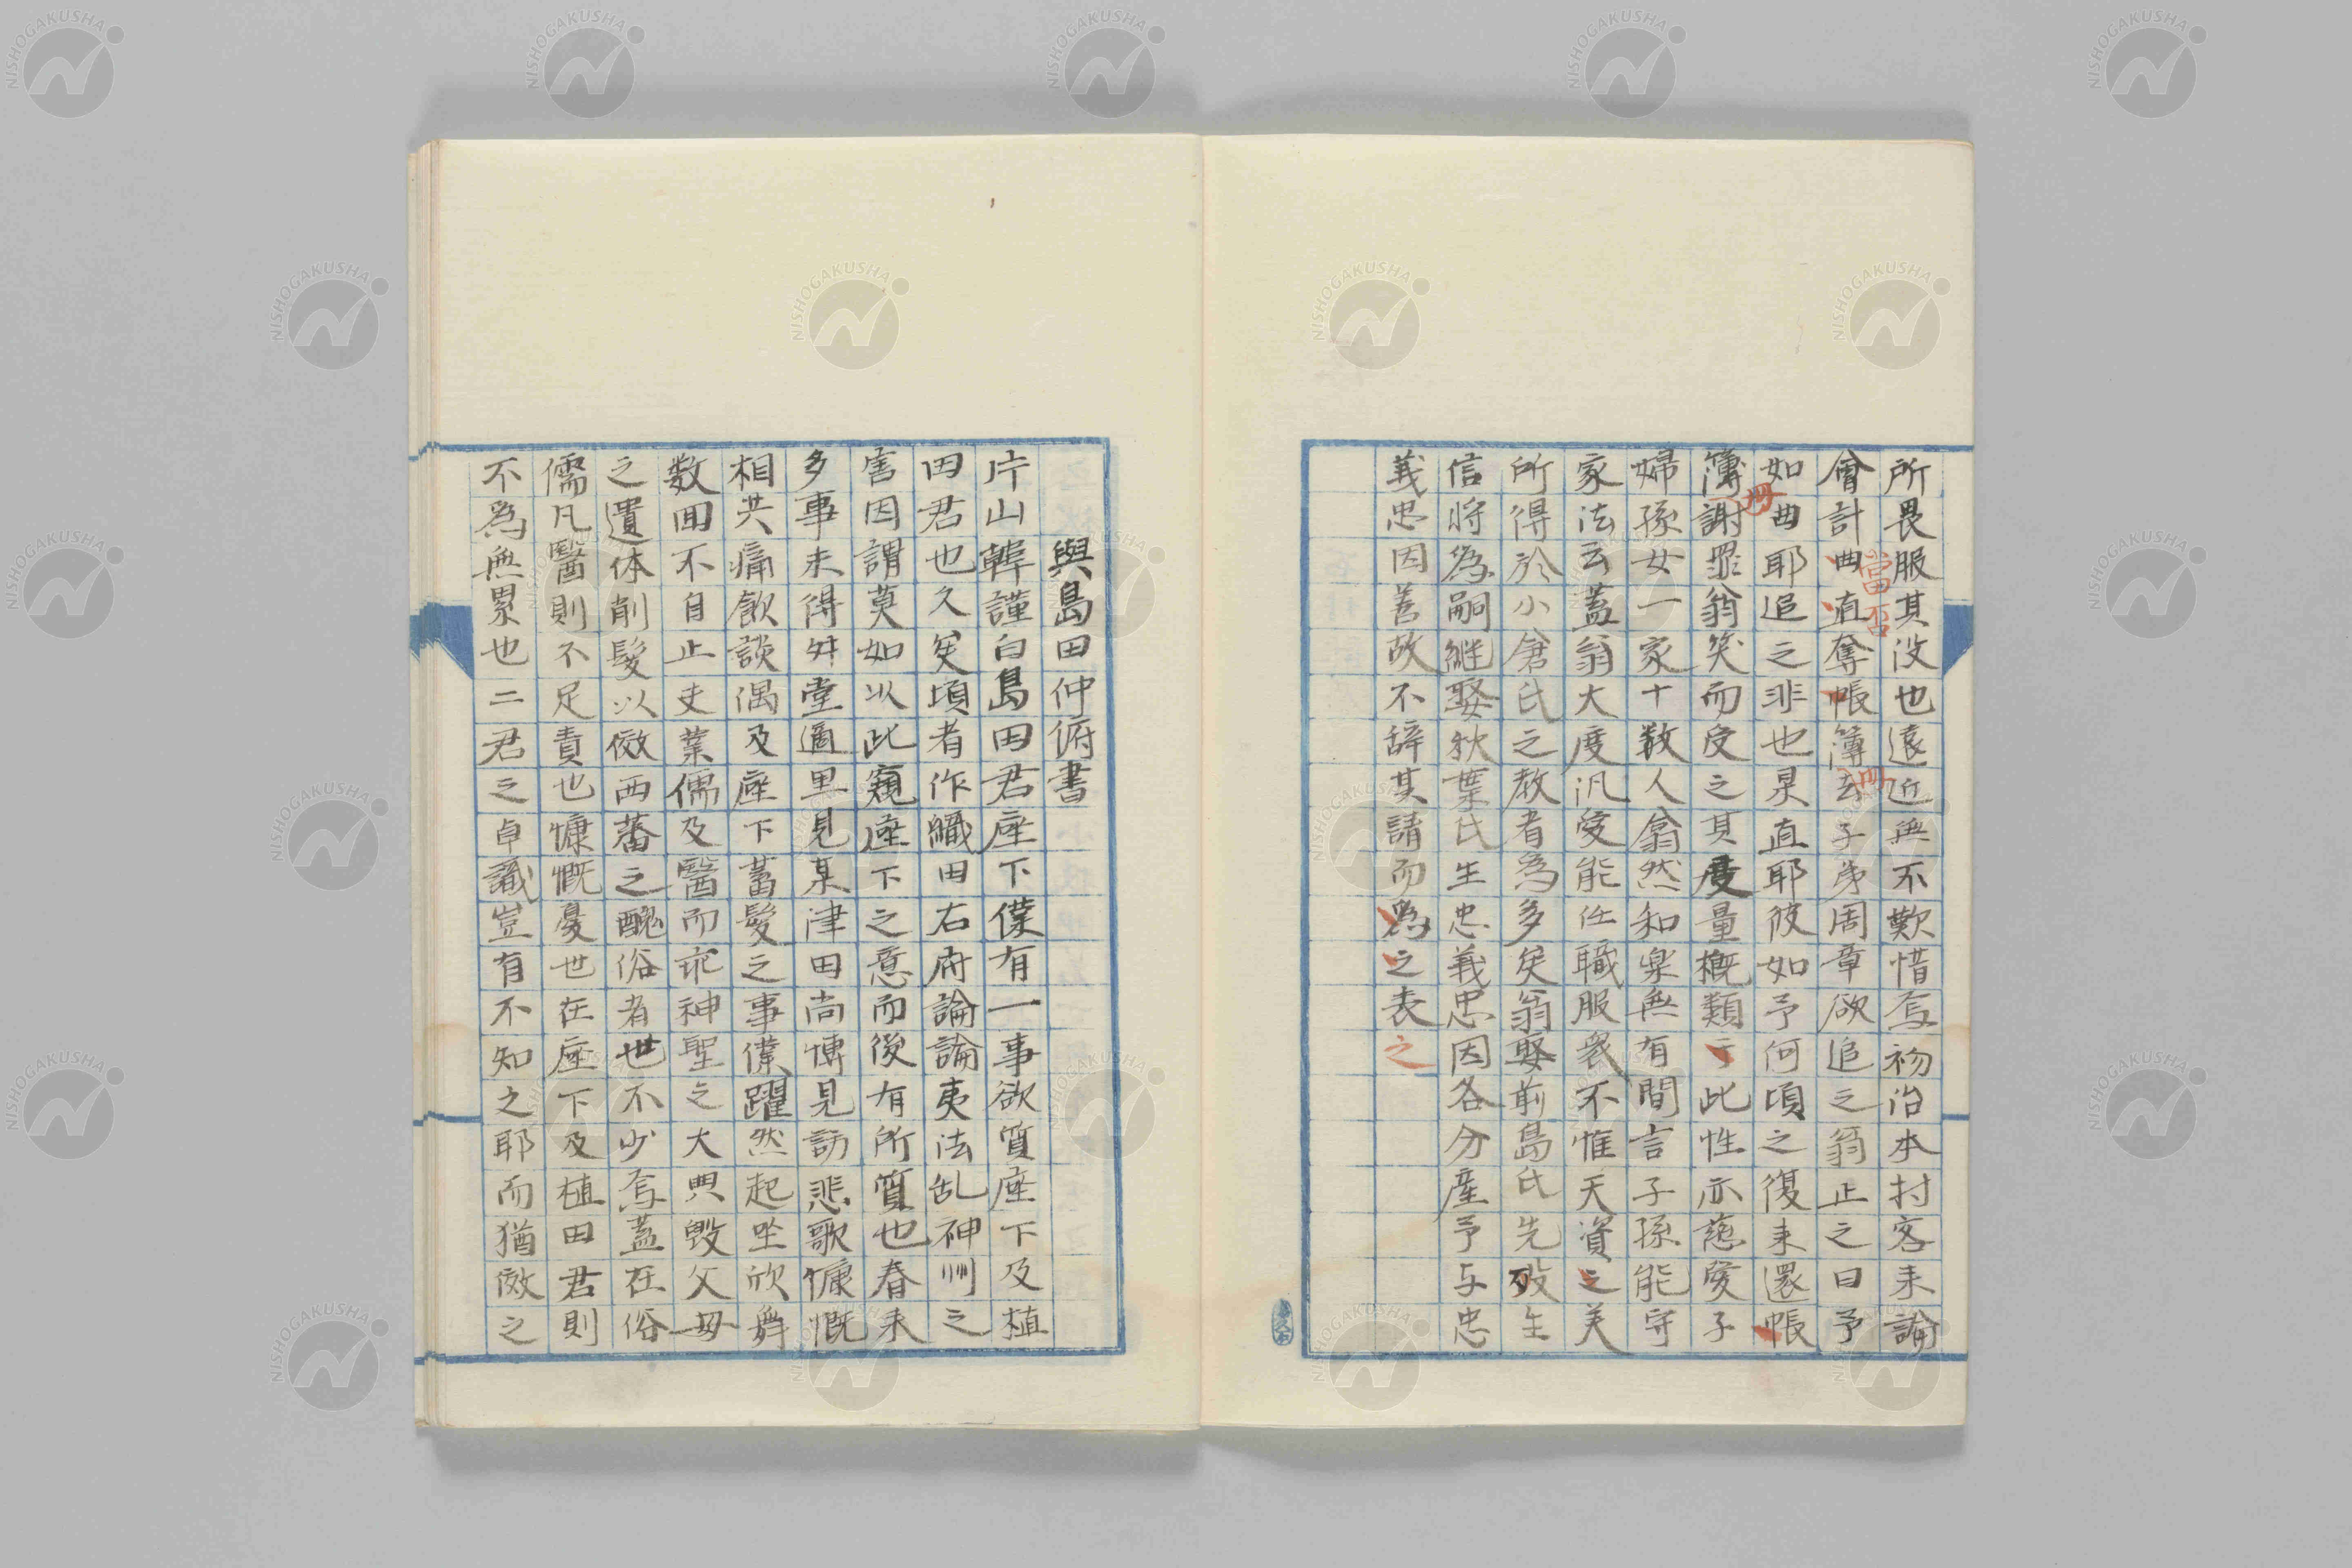 所畏服其沒也遠近無不歎惜焉初治本村客来論
會計曲直奪帳簿去子弟周章欲追之翁止之曰予
當否
冊
如曲耶追之非也是直耶彼如予何頃之復来還帳
冊
簿謝罪翁笑而受之其度量概類于此性亦慈愛子
婦孫女一家十数人翕然和楽無有間言子孫能守
家法云蓋翁大度汎愛能任職服衆不惟天資之美
所得於小倉氏之教者為多矣翁娶前島氏先歿生
信将為嗣継娶秋葉氏生忠義忠因各分産予与忠
義忠因善故不辞其請而為之表之
與島田仲俯書
片山䪐謹白島田君座下僕有一事欲質座下及植
田君也久矣頃者作織田右府論論夷法乱神州之
害因謂莫如以此窺座下之意而後有所質也春来
多事未得舛堂適里見某津田尚博見訪悲歌慷慨
相共痛飲談偶及座下蓄髪之事僕躍然起坐欣舞
数回不自止夫業儒及醫而乖神聖之大典毀父母
之遺体削髪以傚西蕃之醜俗者世不少焉蓋在俗
儒凡醫則不足責也慷慨憂世在座下及植田君則
不為無累也二君之卓識豈有不知之耶而猶傚之
NISHOGAKUSHA